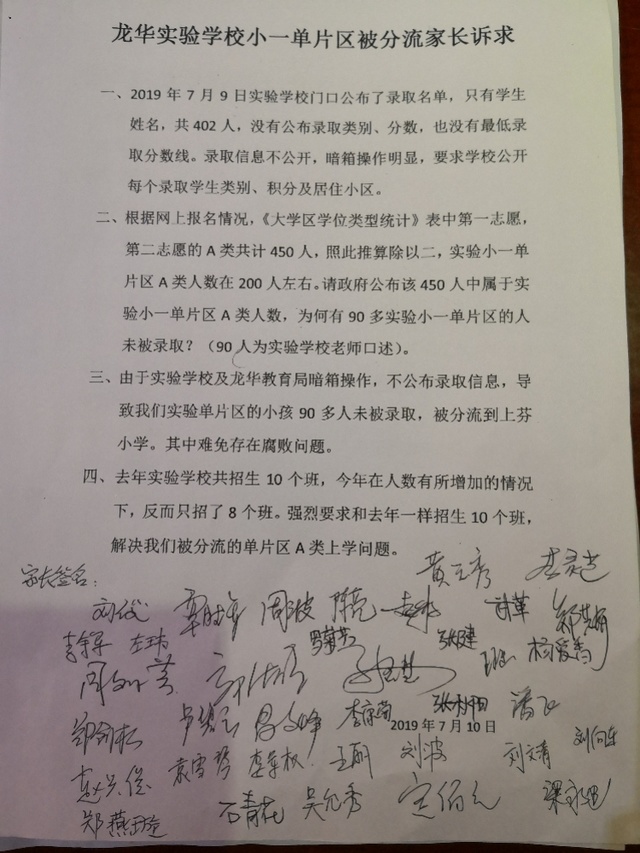 龙华实验学校小一单片区被分流家长诉求
一、2019 年 7 月 9 日实验学校门口公布了录取名单，只有学生
姓名，共 402 人，没有公布录取类别、分数，也没有最低录
取分数线。录取信息不公开，暗箱操作明显，要求学校公开
每个录取学生类别、积分及居住小区。
二、根据网上报名情况，《大学区学位类型统计》表中第一志愿，
第二志愿的 A 类共计 450 人，照此推算除以二，实验小一单
片区 A 类人数在 200 人左右。请政府公布该 450 人中属于实
验小一单片区 A 类人数，为何有 90 多实验小一单片区的人
未被录取？（90 人为实验学校老师口述）。
三、由于实验学校及龙华教育局暗箱操作，不公布录取信息，导
致我们实验单片区的小孩 90 多人未被录取，被分流到上芬
小学。其中难免存在腐败问题。
四、去年实验学校共招生 10 个班，今年在人数有所增加的情况
下，反而只招了 8 个班。强烈要求和去年一样招生 10 个班，
解决我们被分流的单片区 A 类上学问题。
家长签名：
周波 陈亮
张建 杨爱香
郑剑松 李京南 张利阳 潘飞
2019 年 7 月 10 日
袁雪琴 李军权 王丽 刘波 刘文清 刘向东
石青花 吴允秀
郑燕璇